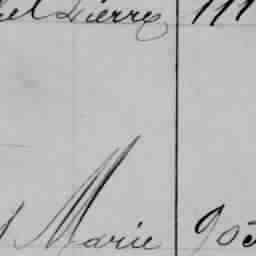 Pierre 111
Marie 905